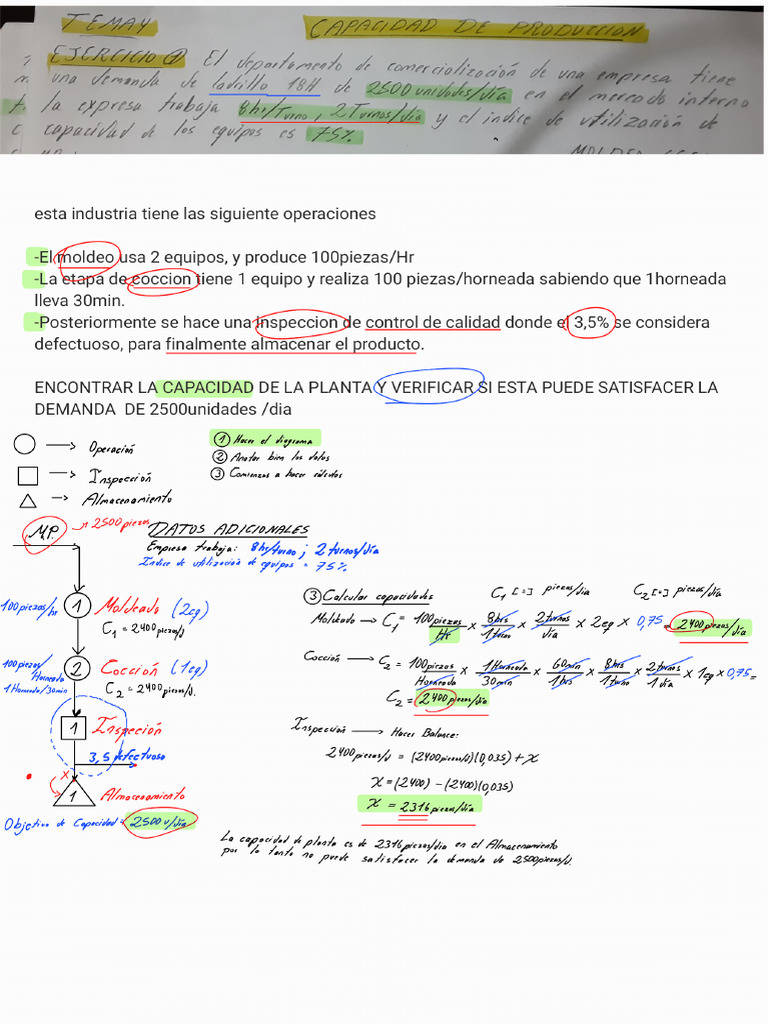 TEMA4 CAPACIDAD DE PRODUCCION
EJERCICIO ① El departamento de comercialización de una empresa tiene
una demanda de ladrillo 18H de 2500 unidades/día en el mercado interno
la expresa trabaja 8hr/Turno, 2Turnos/dia y el indice de utilización de
capacidad de los equipos es 75%
esta industria tiene las siguiente operaciones
-El moldeo usa 2 equipos, y produce 100piezas/Hr
-La etapa de coccion tiene 1 equipo y realiza 100 piezas/horneada sabiendo que 1horneada
lleva 30min.
-Posteriormente se hace una inspeccion de control de calidad donde el 3,5% se considera
defectuoso, para finalmente almacenar el producto.
ENCONTRAR LA CAPACIDAD DE LA PLANTA Y VERIFICAR SI ESTA PUEDE SATISFACER LA
DEMANDA DE 2500unidades /dia
→ Operación
→ Inspección
→ Almacenamiento
① Hacer el diagrama
② Anotar bien los datos
③ Comienzas a hacer cálculos
M.P. → 2500 piezas
DATOS ADICIONALES
Empresa trabaja: 8hr/turno ; 2 turnos/día
Índice de utilización de equipos = 75%
100 piezas/hr
1 Moldeado (2eq)
C1 = 2400 piezas/d
100 piezas/Horneada
1 Horneada/30min
2 Cocción (1eq)
C2 = 2400 piezas/d.
1 Inspeción
3,5 defectuoso
x
1 Almacenamiento
Objetivo de Capacidad = 2500 u/día
③ Calcular capacidades C1 [=] piezas/dia C2 [=] piezas/día
Moldeado → C1 = 100 piezas/Hr × 8hrs/1 turno × 2 turnos/día × 2eq × 0,75 = 2400 piezas/día
Cocción → C2 = 100 piezas/Horneada × 1 Horneada/30 min × 60 min/1 hrs × 8 hrs/1 turno × 2 turnos/1 día × 1eq × 0,75 =
C2 = 2400 piezas/día
Inspección → Hacer Balance:
2400 piezas/d = (2400 piezas/d)(0,035) + x
x = (2400) - (2400)(0,035)
x = 2316 piezas/día
La capacidad de planta es de 2316 piezas/dia en el Almacenamiento
por lo tanto no puede satisfacer la demanda de 2500 piezas/d.